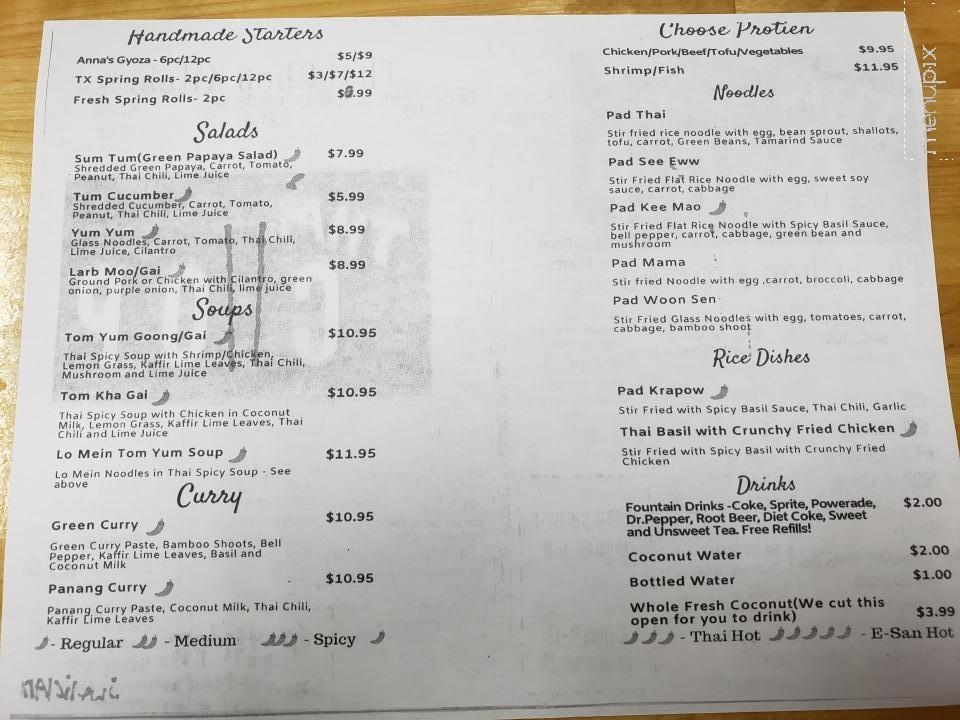 Handmade Starters
Anna's Gyoza - 6pc/12pc $5/$9
TX Spring Rolls- 2pc/6pc/12pc $3/$7/$12
Fresh Spring Rolls- 2pc $6.99
Salads
Sum Tum(Green Papaya Salad) $7.99
Shredded Green Papaya, Carrot, Tomato,
Peanut, Thai Chili, Lime Juice
Tum Cucumber $5.99
Shredded Cucumber, Carrot, Tomato,
Peanut, Thai Chili, Lime Juice
Yum Yum $8.99
Glass Noodles, Carrot, Tomato, Thai Chili,
Lime Juice, Cilantro
Larb Moo/Gai $8.99
Ground Pork or Chicken with Cilantro, green
onion, purple onion, Thai Chili, lime juice
Soups
Tom Yum Goong/Gai $10.95
Thai Spicy Soup with Shrimp/Chicken,
Lemon Grass, Kaffir Lime Leaves, Thai Chili,
Mushroom and Lime Juice
Tom Kha Gai $10.95
Thai Spicy Soup with Chicken in Coconut
Milk, Lemon Grass, Kaffir Lime Leaves, Thai
Chili and Lime Juice
Lo Mein Tom Yum Soup $11.95
Lo Mein Noodles in Thai Spicy Soup - See
above
Curry
Green Curry $10.95
Green Curry Paste, Bamboo Shoots, Bell
Pepper, Kaffir Lime Leaves, Basil and
Coconut Milk
Panang Curry $10.95
Panang Curry Paste, Coconut Milk, Thai Chili,
Kaffir Lime Leaves
- Regular - Medium - Spicy
Choose Protien
Chicken/Pork/Beef/Tofu/Vegetables $9.95
Shrimp/Fish $11.95
Noodles
Pad Thai
Stir fried rice noodle with egg, bean sprout, shallots,
tofu, carrot, Green Beans, Tamarind Sauce
Pad See Eww
Stir Fried Flat Rice Noodle with egg, sweet soy
sauce, carrot, cabbage
Pad Kee Mao
Stir Fried Flat Rice Noodle with Spicy Basil Sauce,
bell pepper, carrot, cabbage, green bean and
mushroom
Pad Mama
Stir fried Noodle with egg ,carrot, broccoli, cabbage
Pad Woon Sen
Stir Fried Glass Noodles with egg, tomatoes, carrot,
cabbage, bamboo shoot
Rice Dishes
Pad Krapow
Stir Fried with Spicy Basil Sauce, Thai Chili, Garlic
Thai Basil with Crunchy Fried Chicken
Stir Fried with Spicy Basil with Crunchy Fried
Chicken
Drinks
Fountain Drinks -Coke, Sprite, Powerade, $2.00
Dr.Pepper, Root Beer, Diet Coke, Sweet
and Unsweet Tea. Free Refills!
Coconut Water $2.00
Bottled Water $1.00
Whole Fresh Coconut(We cut this
open for you to drink) $3.99
- Thai Hot - E-San Hot
menupix